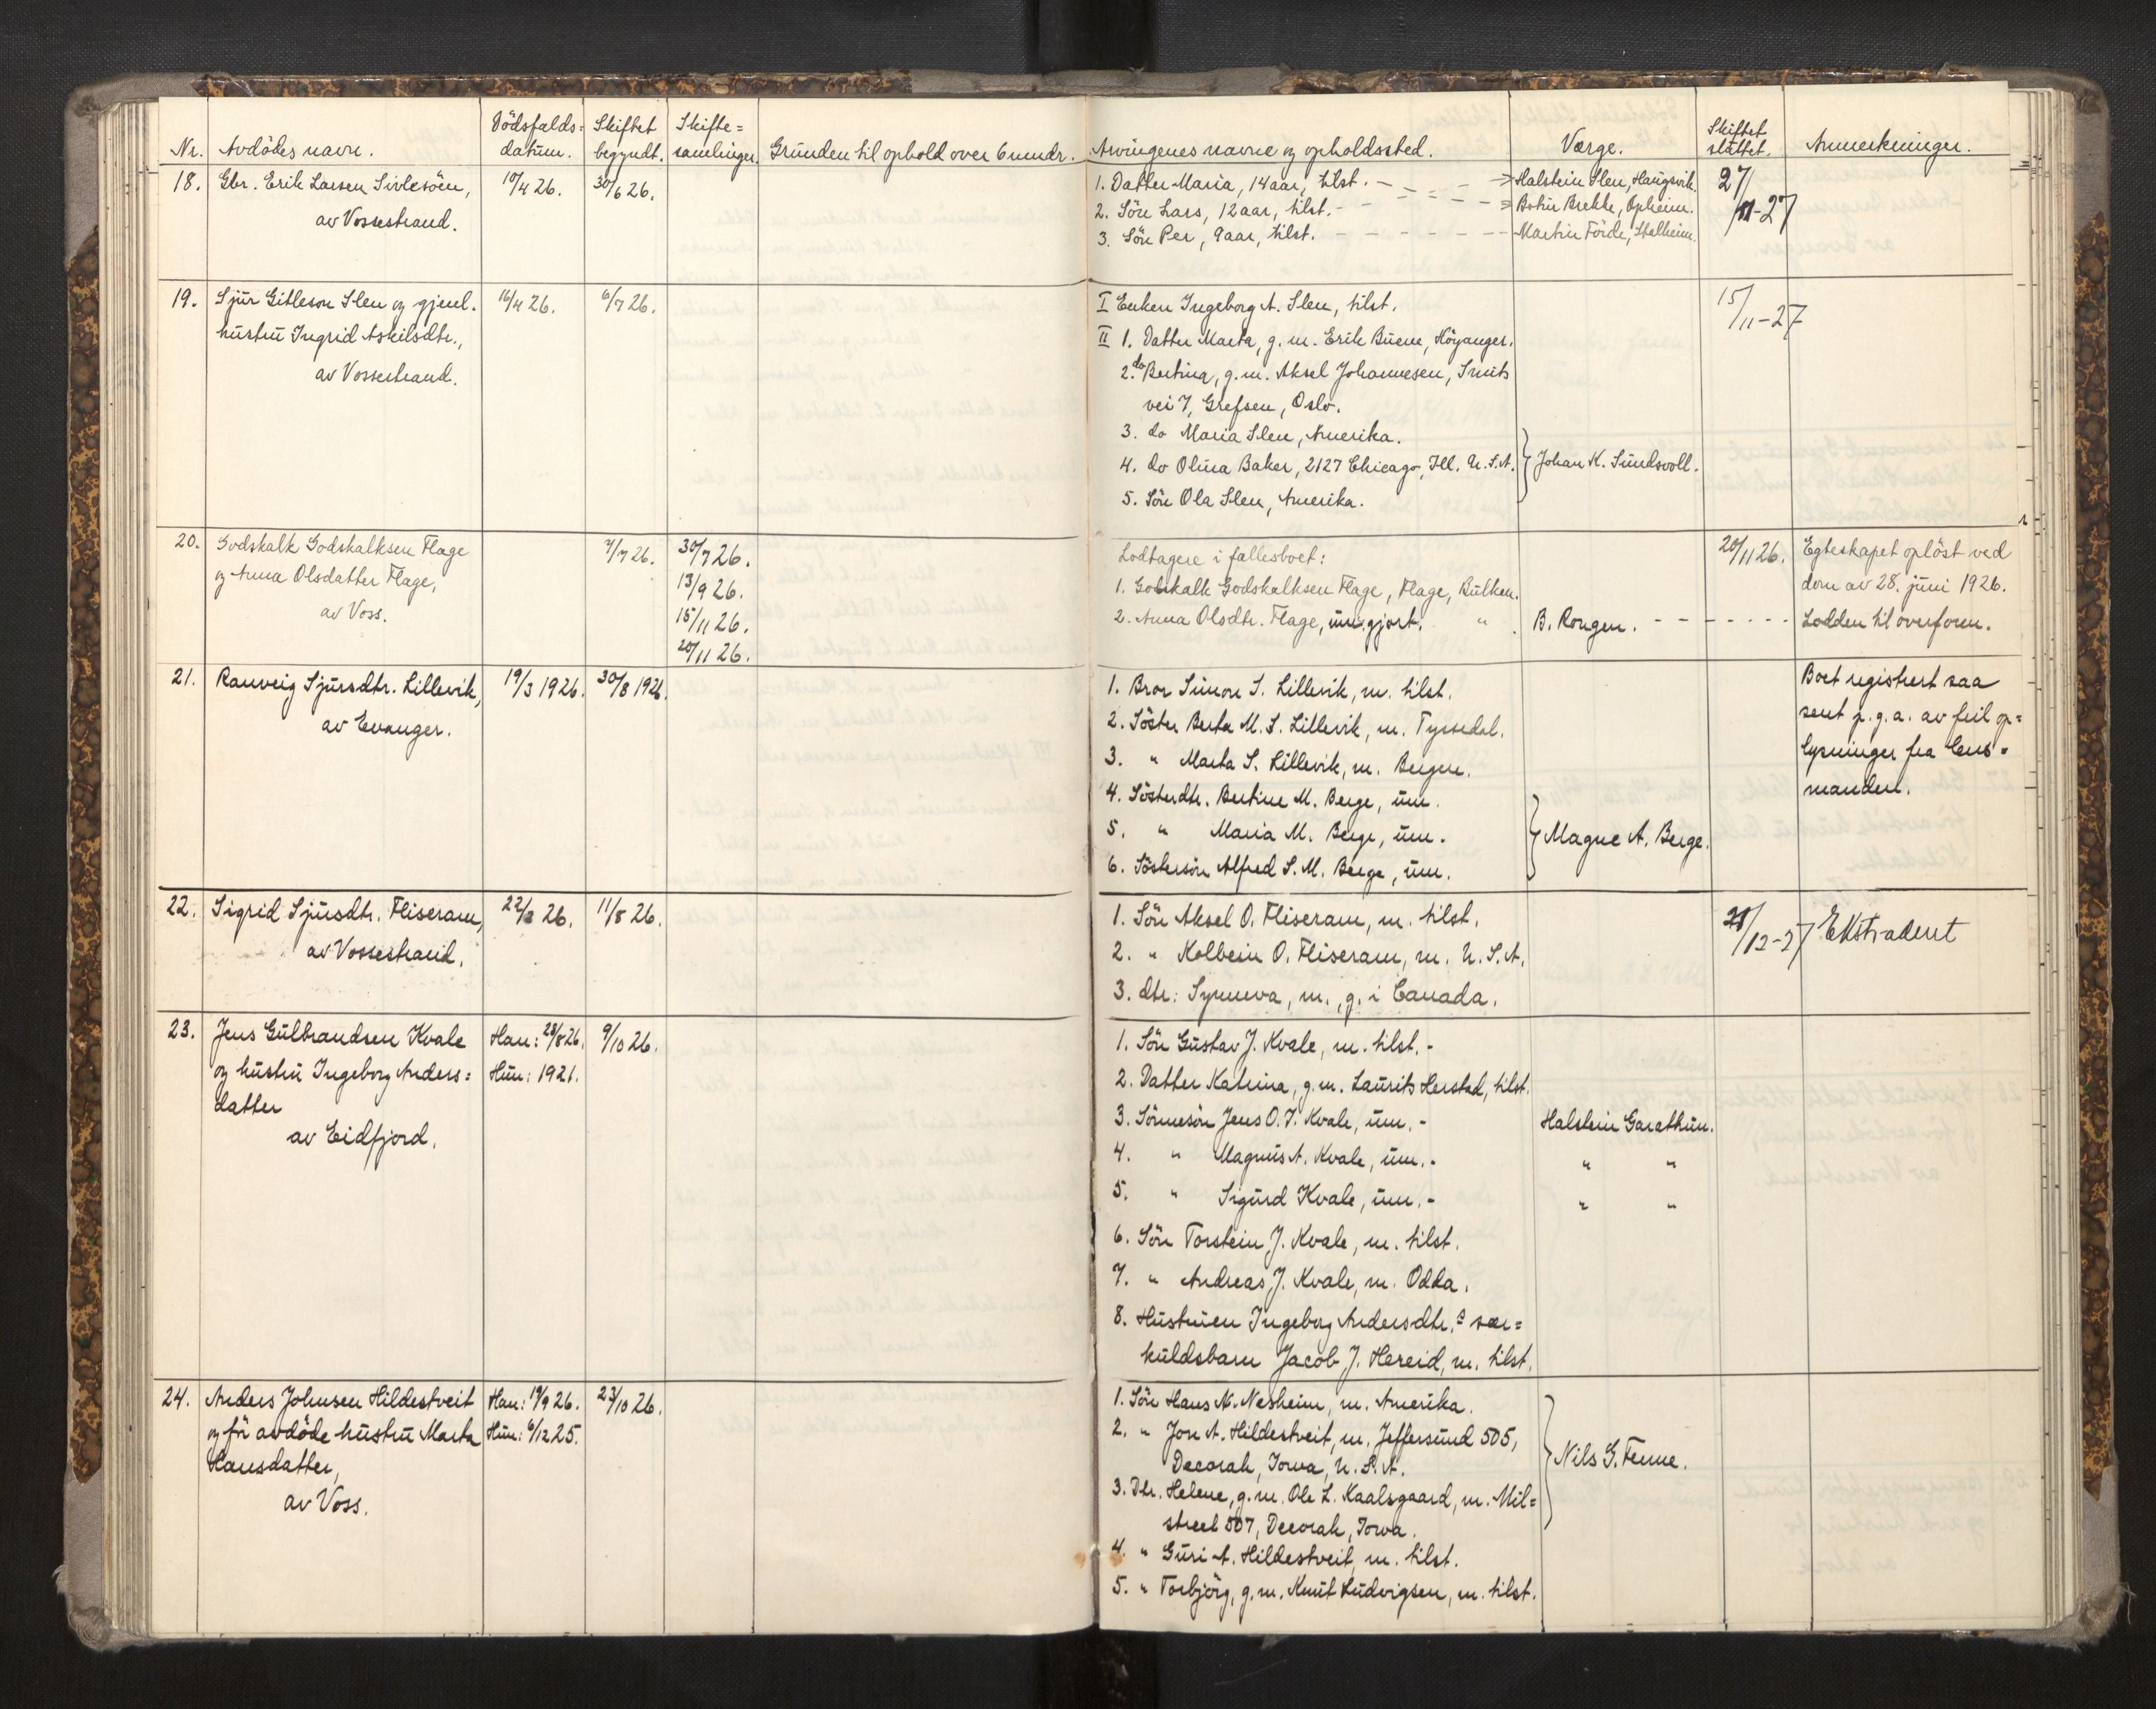 Nr. Avdødes navn. Dödsfalds= datum. Skiftet begyndt. Skifte= samlinger. Grunden til ophold over 6 mndr. Arvingenes navne og opholdssted. Værge. Skiftet sluttet. Anmerkninger.
18. Gbr. Erik Larsen Sivlesöen, 10/4 26. 30/6 26.
av Vossestrand.
1. Datter Maria, 14 aar, tilst. Halstein Slen, Haugsvik.
2. Sön Lars, 12 aar, tilst. Botn Brekke, Opheim.
3. Sön Per, 9 aar, tilst. Martin Förde, Stalheim.
27/11-27
19. Sjur Gitleson Slen og gjenl. 16/4 26. 6/7 26.
hustru Ingrid Askilsdtr.,
av Vossestrand.
I Enken Ingeborg A. Slen, tilst. 15/11-27
II 1. Datter Marta, g. m. Erik Buene, Höyanger.
2. do Bertina, g. m. Aksel Johannesen, Smits
vei 7, Grefsen, Oslo.
3. do Maria Slen, Amerika.
4. do Olina Baker, 2127 Chicago, Ill. U.S.A. Johan K. Sundsvoll.
5. Sön Ola Slen, Amerika.
20. Godskalk Godskalksen Flage 7/7 26. 30/7 26.
og Anna Olsdatter Flage, 13/9 26.
av Voss. 15/11 26.
20/11 26.
Lodtagere i fællesboet: 20/11 26. Egteskapet oplöst ved
1. Gotskalk Godskalksen Flage, Flage, Bulken. dom av 28. juni 1926.
2. Anna Olsdtr. Flage, um.gjort. " B. Rongen. Lodden til overform.
21. Ranveig Sjursdtr. Lillevik, 19/3 1926. 30/8 1926.
av Evanger.
1. Bror Simon S. Lillevik, m. tilst. Boet registrert saa
2. Söster Berta M. S. Lillevik, m. Tyssedal. sent p.g.a. av feil op=
3. " Marta S. Lillevik, m. Bergen. lysninger fra lens=
4. Sösterdtr. Bertine M. Berge, um. manden.
5. " Maria M. Berge, um. Magne A. Berge.
6. Söstersön Alfred S. M. Berge, um.
22. Sigrid Sjursdtr. Fliseram, 22/2 26. 11/8 26.
av Vossestrand.
1. Sön Aksel O. Fliseram, m. tilst. 21/12-27 Ekstradert
2. " Kolbein O. Fliseram, m. U.S.A.
3. dtr. Synneva, m., g. i Canada.
23. Jens Gulbrandsen Kvale Han: 28/8 26. 9/10 26.
og hustru Ingeborg Anders= Hun: 1921.
datter
av Eidfjord.
1. Sön Gustav J. Kvale, m. tilst. -
2. Datter Katrina, g. m. Laurits Herstad, tilst.
3. Sönnesön Jens O. J. Kvale, um. - Halstein Garathun.
4. " Magnus A. Kvale, um. - " "
5. " Sigurd Kvale, um. - " "
6. Sön Torstein J. Kvale, m. tilst.
7. " Andreas J. Kvale, m. Odda.
8. Hustruen Ingeborg Andersdtr.s sær=
kuldsbarn Jacob J. Hereid, m. tilst.
24. Anders Johnsen Hildestveit Han: 19/9 26. 23/10 26.
og för avdöde hustru Marta Hun: 6/12 25.
Hansdatter,
av Voss.
1. Sön Hans N. Nesheim, m. Amerika.
2. " Jon A. Hildestveit, m. Jeffersund 505,
Decorah, Iowa, U.S.A. Nils G. Fenne.
3. Dtr. Helene, g. m. Ole L. Kaalsgaard, m. Mil=
street 507, Decorah, Iowa.
4. " Guri A. Hildestveit, m. tilst.
5. " Torbjörg, g. m. Knut Ludvigsen, m. tilst.